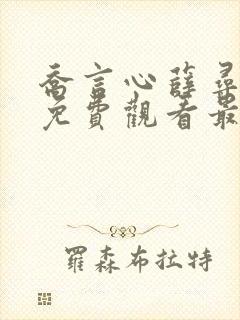 喬言心薛尋
免費觀看最
羅森布拉特